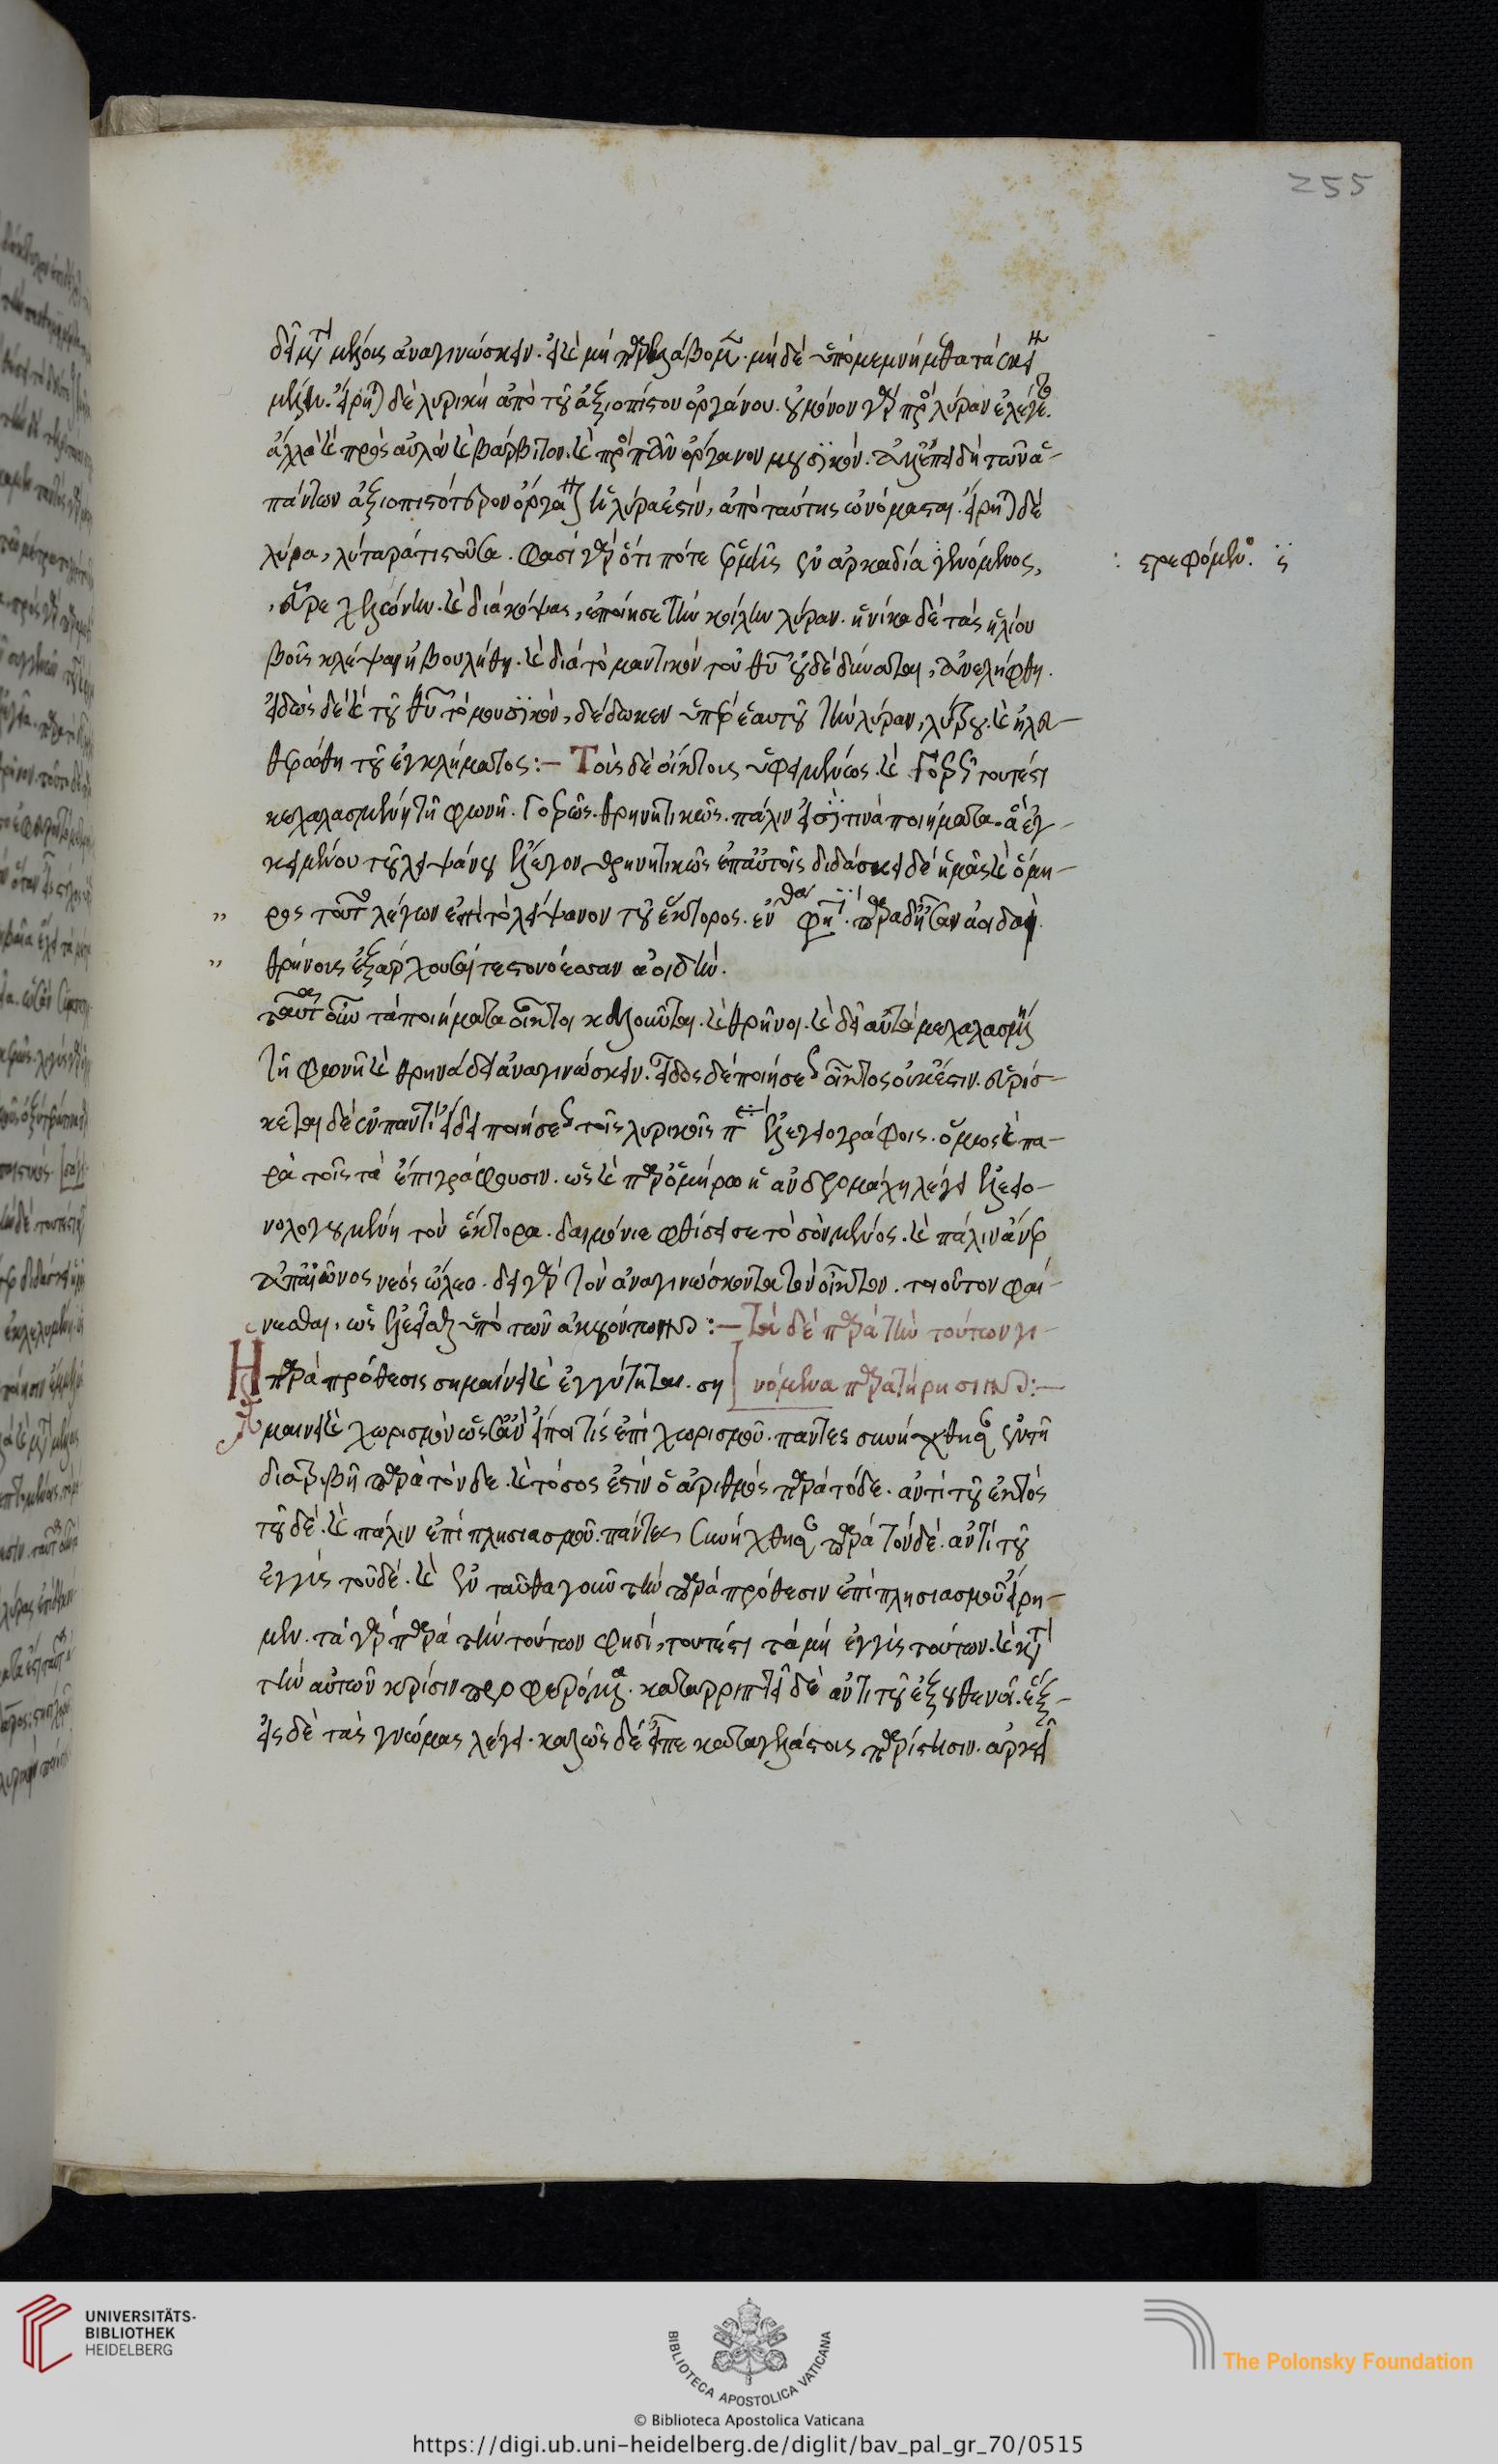 255
δεῖ μετὰ μέλους ἀναγινώσκειν. εἰ καὶ μὴ παρελάβομεν. μηδὲ ὑπομεμνήμεθα τὰ ἐκεί
μέλη. εἴρηται δὲ λυρικὴ ἀπὸ τοῦ ἀξιοπίστου ὀργάνου. οὐ μόνον γὰρ πρὸς λύραν ἐλέγετο.
ἀλλὰ καὶ πρὸς αὐλὸν καὶ βάρβιτον. καὶ πρὸς πᾶν ὄργανον μουσικόν. ἀλλ' ἐπειδὴ τῶν ἁ-
πάντων ἀξιοπιστότερον ὄργανον ἡ λύρα ἐστίν, ἀπὸ ταύτης ὠνόμασται. εἴρηται δὲ
λύρα, λύτρα τις οὖσα. φασὶ γὰρ ὅτι ποτὲ ἑρμῆς ἐν ἀρκαδία γενόμενος,
στρεφόμενος
εὗρε χελώνην. καὶ διακόψας, ἐποίησε τὴν κοίλην λύραν. ἡνίκα δὲ τὰς ἡλίου
βοῦς κλέψαι ἠβουλήθη. καὶ διὰ τὸ μαντικὸν τοῦ θεοῦ οὐ δεδύνηται, ἀνελήφθη.
εἰδὼς δὲ καὶ τοῦ θεοῦ τὸ μουσικόν, δέδωκεν ὑπὲρ ἑαυτοῦ τὴν λύραν, λύτρου. καὶ ἠλευ-
θερώθη τοῦ ἐγκλήματος:— Τοὺς δὲ οἴκτους ὑφειμένως. καὶ γοερῶς τουτέστι
κεχαλασμένη τῆ φωνῆ. γοερῶς. θρηνητικῶς. πάλιν εἰσί τινα ποιήματα ἃ ἐγ-
κειμένου τοῦ λειψάνου ἔλεγον θρηνητικῶς ἐπ' αὐτοῖς διδάσκει δὲ ἡμᾶς καὶ ὅμη-
ρος τοῦτο λέγων ἐπὶ τὸ λείψανον τοῦ ἕκτορος. ἔνθα φησί. παρὰ δ' εἷσαν ἀοιδοὺς.
θρήνοις ἐξάρχουσαί τε στονόεσσαν ἀοιδήν.
ταῦτα οὖν τὰ ποιήματα οἶκτοι καλοῦνται. καὶ θρῆνοι. καὶ δεῖ αὐτὰ κεχαλασμένη
τῆ φωνῆ καὶ θρηνώδει ἀναγινώσκειν. εἶδος δὲ ποιήσεως οἶκτος οὐκ ἔστιν. εὑρίσ-
κεται δὲ ἐν παντὶ εἴδει ποιήσεως τοῖς λυρικοῖς ἐλεγειογράφοις. ὅμως καὶ πα-
ρὰ τοῖς τὰ ἔπη γράφουσιν. ὡς καὶ παρ' ὁμήρω ἡ ἀνδρομάχη λέγει ἐλεειο-
νολογουμένη τὸν ἕκτορα. δαιμόνιε φθίσει σε τὸ σὸν μένος. καὶ πάλιν ἄνερ
ἀπ' αἰῶνος νέος ὤλεο. δεῖ γὰρ τὸν ἀναγινώσκοντα τὸν οἶκτον. τοιοῦτον φαί-
νεσθαι, ὡς ἐλεεῖσθαι ὑπὸ τῶν ἀκουόντων:— Τὰ δὲ παρὰ τὴν τούτων γι-
νόμενα παρατήρησιν:—
Ἡ παρὰ πρόθεσις σημαίνει καὶ ἐγγύτητα. ση
μαίνει καὶ χωρισμὸν ὡς ἐὰν εἴποι τὶς ἐπὶ χωρισμοῦ. πάντες συνήχθησαν ἐν τῆ
διατριβῆ παρὰ τόνδε. καὶ τόσος ἐστὶν ὁ ἀριθμὸς παρὰ τόδε. ἀντὶ τοῦ ἐκτὸς
τοῦδε. καὶ πάλιν ἐπὶ πλησιασμοῦ. πάντες συνήχθησαν παρὰ τοῦδε. ἀντὶ τοῦ
ἐγγὺς τοῦδε. καὶ ἐνταῦθα γοῦν τὴν παρὰ πρόθεσιν ἐπὶ πλησιασμοῦ εἴρη-
μεν. τὰ γὰρ παρὰ τὴν τούτων φησί, τουτέστι τὰ μὴ ἐγγὺς τούτων. καὶ κατὰ
τὴν αὐτῶν κρίσιν προφερόμενα. καταρριπτεῖ δὲ ἀντὶ τοῦ ἐξουθενεῖ. ἕξ-
εις δὲ τὰς γνώμας λέγει. καλῶς δὲ εἶπε καταγελάστους παρίστησιν. ἀρκεῖ
UNIVERSITÄTS-
BIBLIOTHEK
HEIDELBERG
BIBLIOTECA APOSTOLICA VATICANA
The Polonsky Foundation
© Biblioteca Apostolica Vaticana
https://digi.ub.uni-heidelberg.de/diglit/bav_pal_gr_70/0515